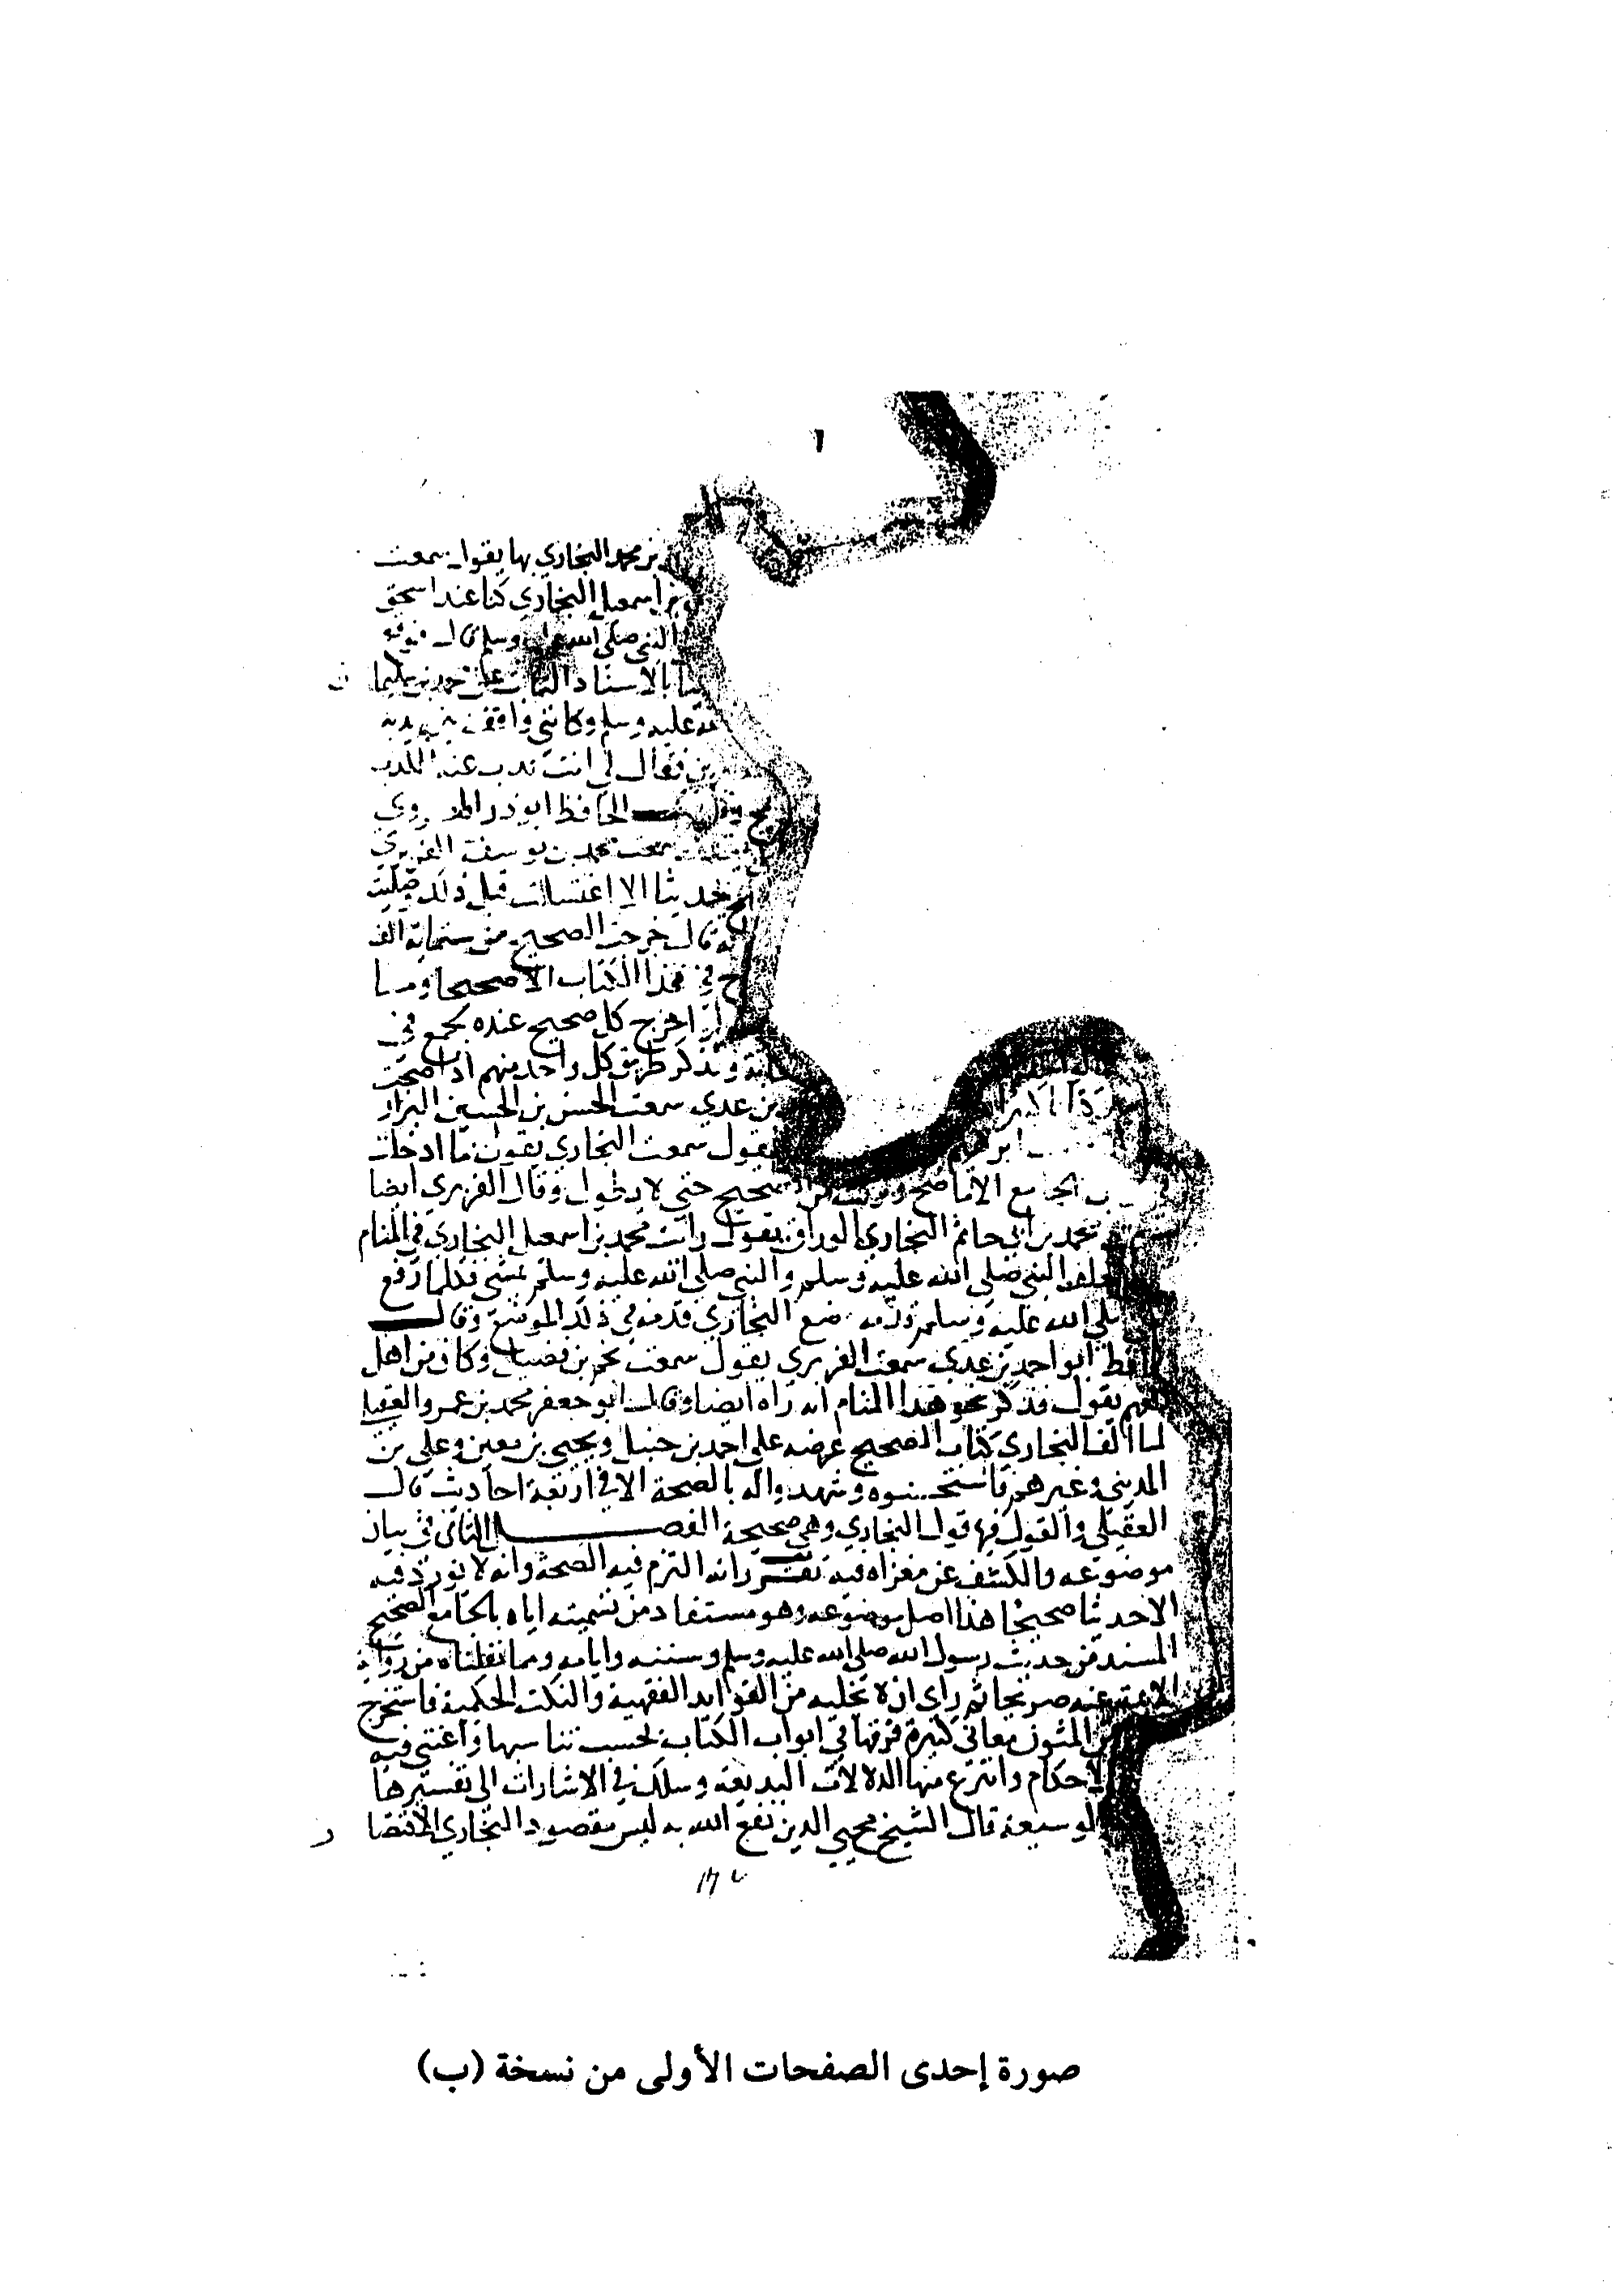 بن محمد البخاري بها يقول سمعت
بن اسمعيل البخاري كنا عند اسحق
النبي صلى الله عليه وسلم قال فوقع
بالاسناد الثابت عن محمد بن سليمان
عليه وسلم وكانني واقف بين يديه
فقال لي انت تذب عنه الكذب
الحافظ ابو ذر الهروي
سمعت محمد بن يوسف الفربري
حديثا الا اغتسلت قبل ذلك وصليت
قال خرجت الصحيح من ستماية الف
في هذا الكتاب الا صحيحا وما
اخرج كل صحيح عنده لجمع في
ويذكر طريق كل واحد منهم اذا صحت
بن عدي سمعت الحسن بن الحسين البزار
يقول سمعت البخاري يقول ما ادخلت
الجامع الا ما صح وتركت من الصحيح حتى لا يطول وقال الفربري ايضا
محمد بن ابي حاتم البخاري الوراق يقول رايت محمد بن اسمعيل البخاري في المنام
خلف النبي صلى الله عليه وسلم والنبي صلى الله عليه وسلم يمشي فكلما رفع
صلى الله عليه وسلم قدمه وضع البخاري قدمه في ذلك الموضع وقال
ابو احمد بن عدي سمعت الفربري يقول سمعت نجم بن فضيل وكان من اهل
يقول فذكر نحو هذا المنام انه راه ايضا وقال ابو جعفر محمد بن عمرو العقيلي
لما الف البخاري كتاب الصحيح عرضه على احمد بن حنبل ويحيى بن معين وعلي بن
المديني وغيرهم فاستحسنوه وشهدوا له بالصحة الا في اربعة احاديث قال
العقيلي والقول فيها قول البخاري وهي صحيحة الفصل الثاني في بيان
موضوعه والكشف عن مغزاه فيه تقرر انه التزم فيه الصحة وانه لا يورد فيه
الا حديثا صحيحا هذا اصل موضوعه وهو مستفاد من تسميته اياه بالجامع الصحيح
المسند من حديث رسول الله صلى الله عليه وسلم وسننه وايامه ومما نقلناه من رواية
الايمة عنه صريحا ثم راى ان لا يخليه من الفوايد الفقهية والنكت الحكمية فاستخرج
من المتون معاني كثيرة فرقها في ابواب الكتاب بحسب تناسبها واعتنى فيه
الاحكام وانتزع منها الدلالات البديعة وسلك في الاشارات الى تفسيرها
الوسيعة قال الشيخ محيي الدين نفع الله به ليس مقصود البخاري الاقتصار
صورة إحدى الصفحات الأولى من نسخة (ب)